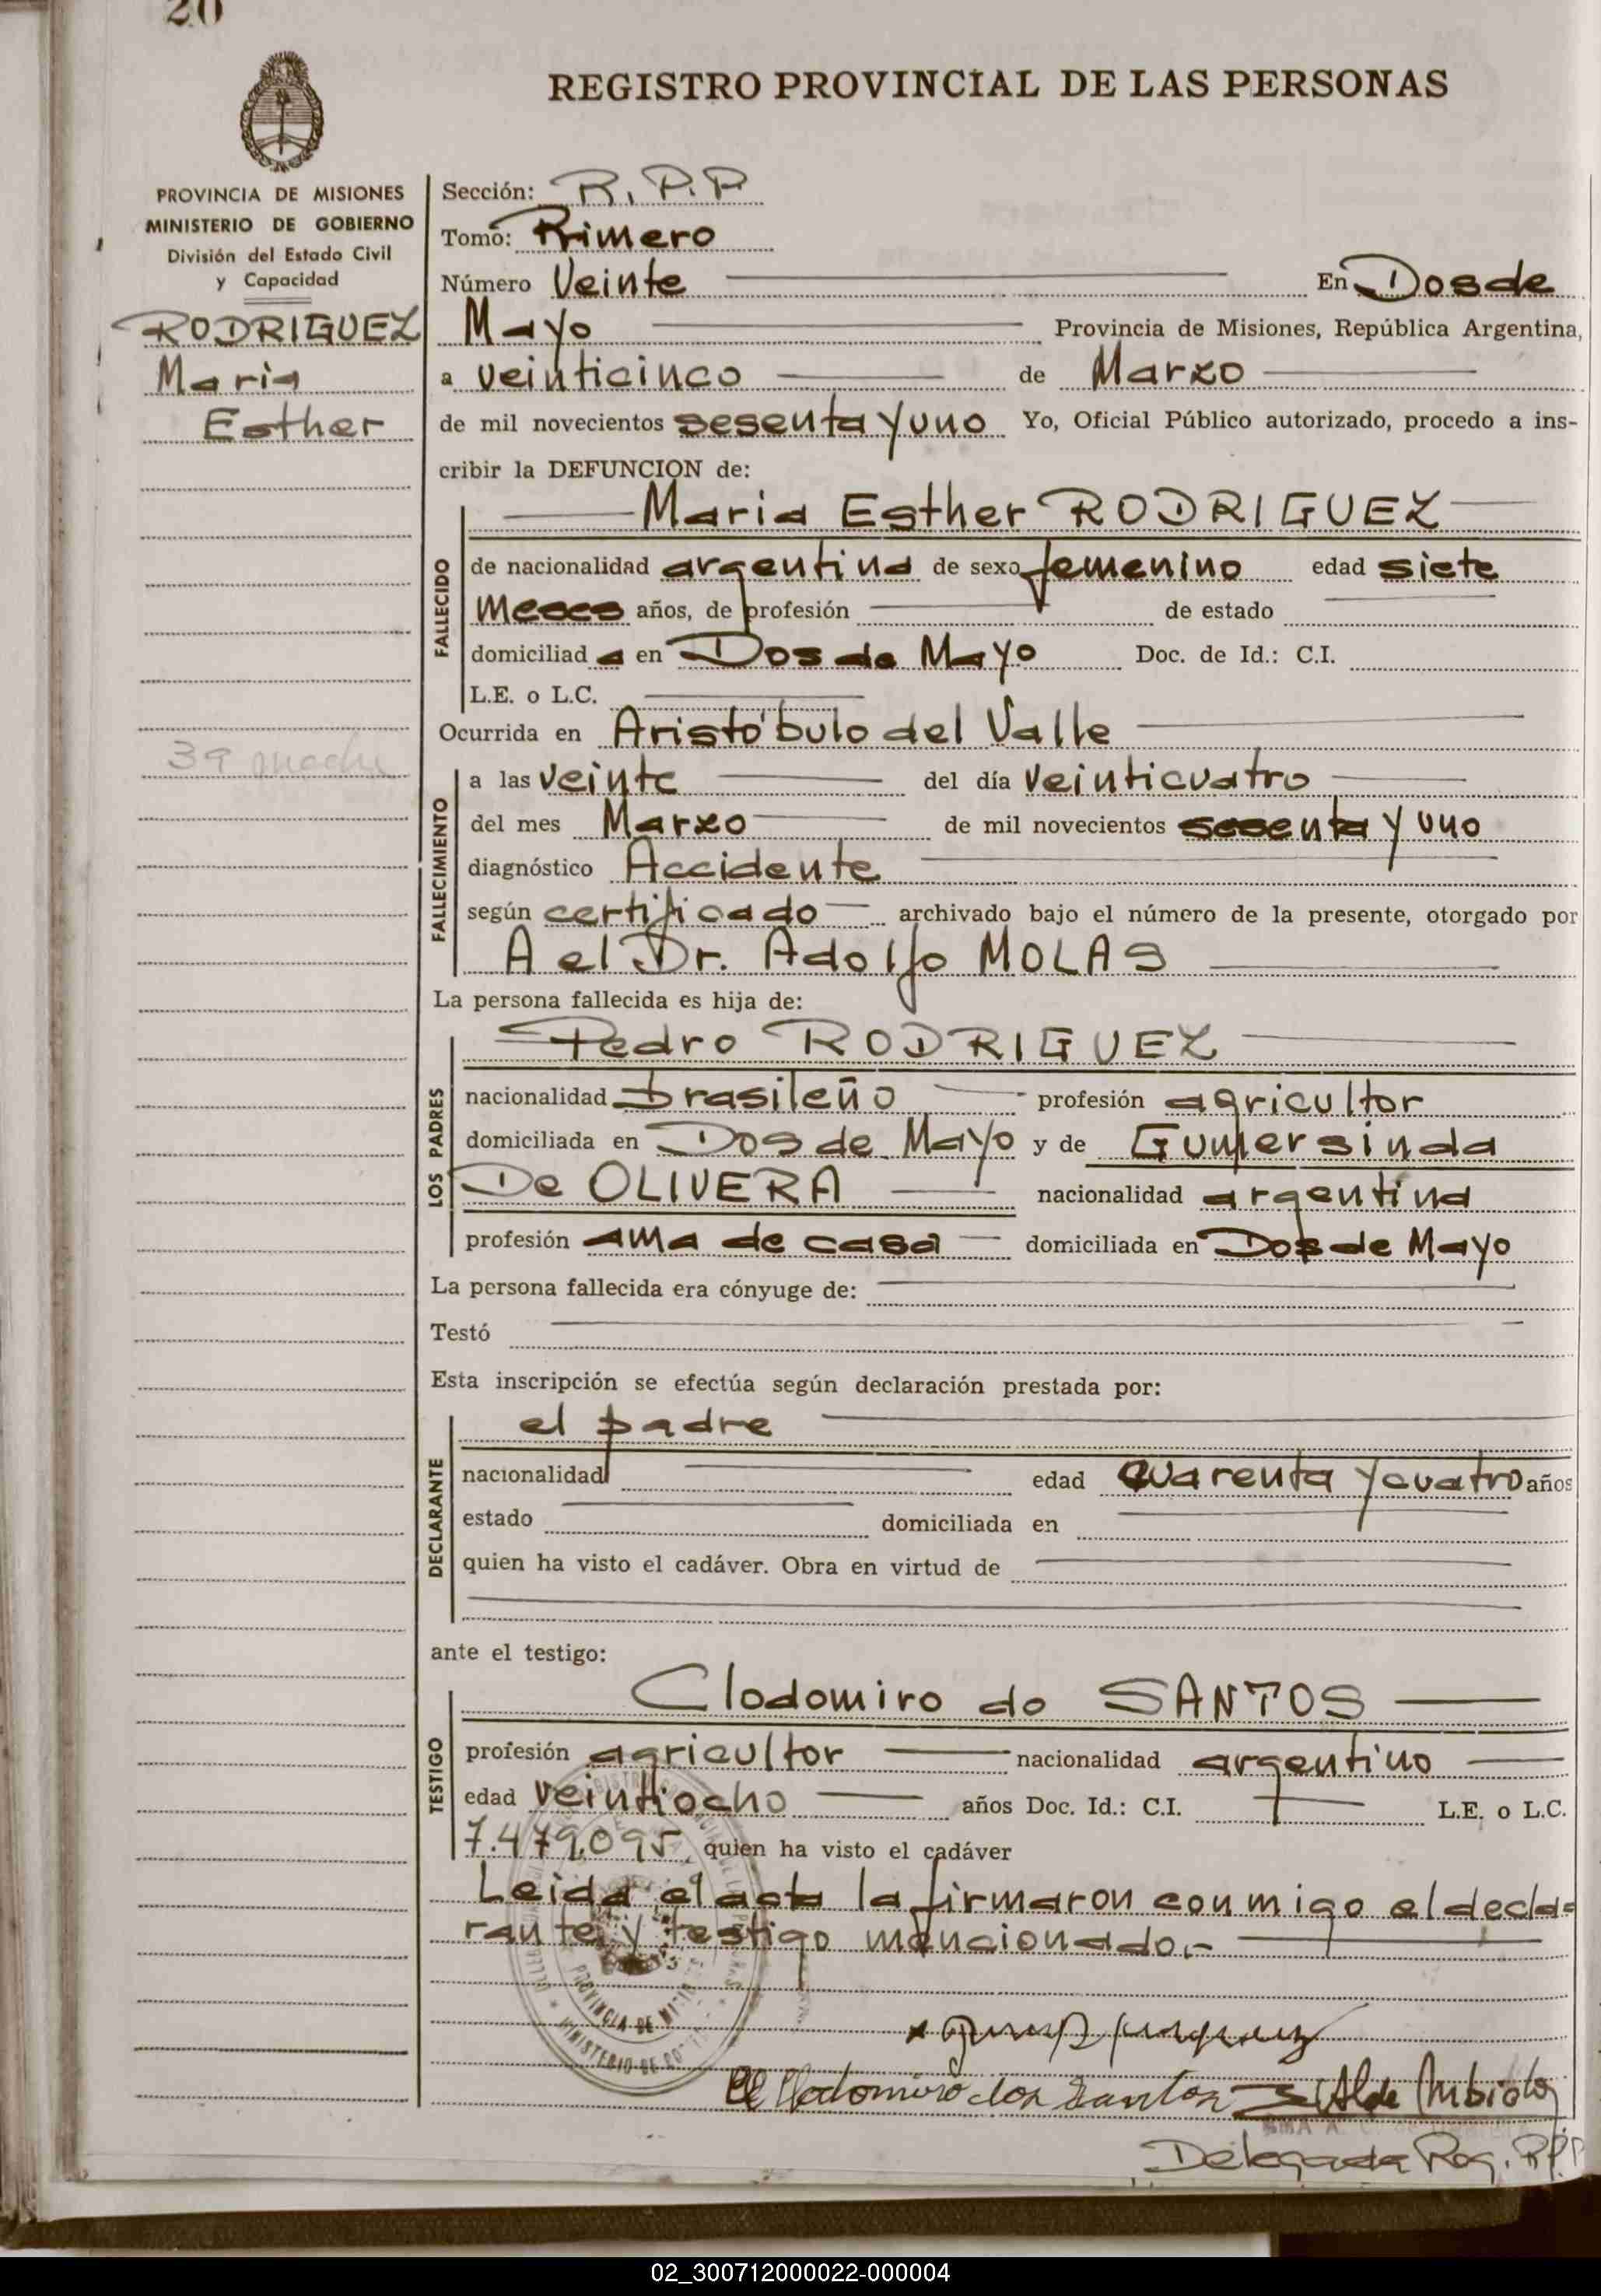 20
REGISTRO PROVINCIAL DE LAS PERSONAS
PROVINCIA DE MISIONES
MINISTERIO DE GOBIERNO
División del Estado Civil
y Capacidad
RODRIGUEZ
Maria
Esther
Sección: R.P.P.
Tomo: Primero
Número Veinte En Dos de
Mayo Provincia de Misiones, República Argentina,
a veinticinco de Marzo
de mil novecientos sesenta y uno Yo, Oficial Público autorizado, procedo a ins-
cribir la DEFUNCION de:
Maria Esther RODRIGUEZ
FALLECIDO
de nacionalidad argentina de sexo femenino edad siete
meses años, de profesión de estado
domiciliad a en Dos de Mayo Doc. de Id.: C.I.
L.E. o L.C.
Ocurrida en Aristóbulo del Valle
FALLECIMIENTO
a las veinte del día veinticuatro
del mes Marzo de mil novecientos sesenta y uno
diagnóstico Accidente
según certificado archivado bajo el número de la presente, otorgado por
A el Dr. Adolfo MOLAS
La persona fallecida es hija de:
LOS PADRES
Pedro RODRIGUEZ
nacionalidad brasileño profesión agricultor
domiciliada en Dos de Mayo y de Gumersinda
De OLIVERA nacionalidad argentina
profesión ama de casa domiciliada en Dos de Mayo
La persona fallecida era cónyuge de:
Testó
Esta inscripción se efectúa según declaración prestada por:
DECLARANTE
el padre
nacionalidad edad cuarenta y cuatro años
estado domiciliada en
quien ha visto el cadáver. Obra en virtud de
ante el testigo:
TESTIGO
Clodomiro do SANTOS
profesión agricultor nacionalidad argentino
edad veintiocho años Doc. Id.: C.I. L.E. o L.C.
7.479.095 quien ha visto el cadáver
Leida el acta la firmaron conmigo el decla-
rante y testigo mencionado.-
PROVINCIA DE
MINISTERIO DE
Clodomiro dos Santos
Delegada Reg. R.P.P
02_300712000022-000004